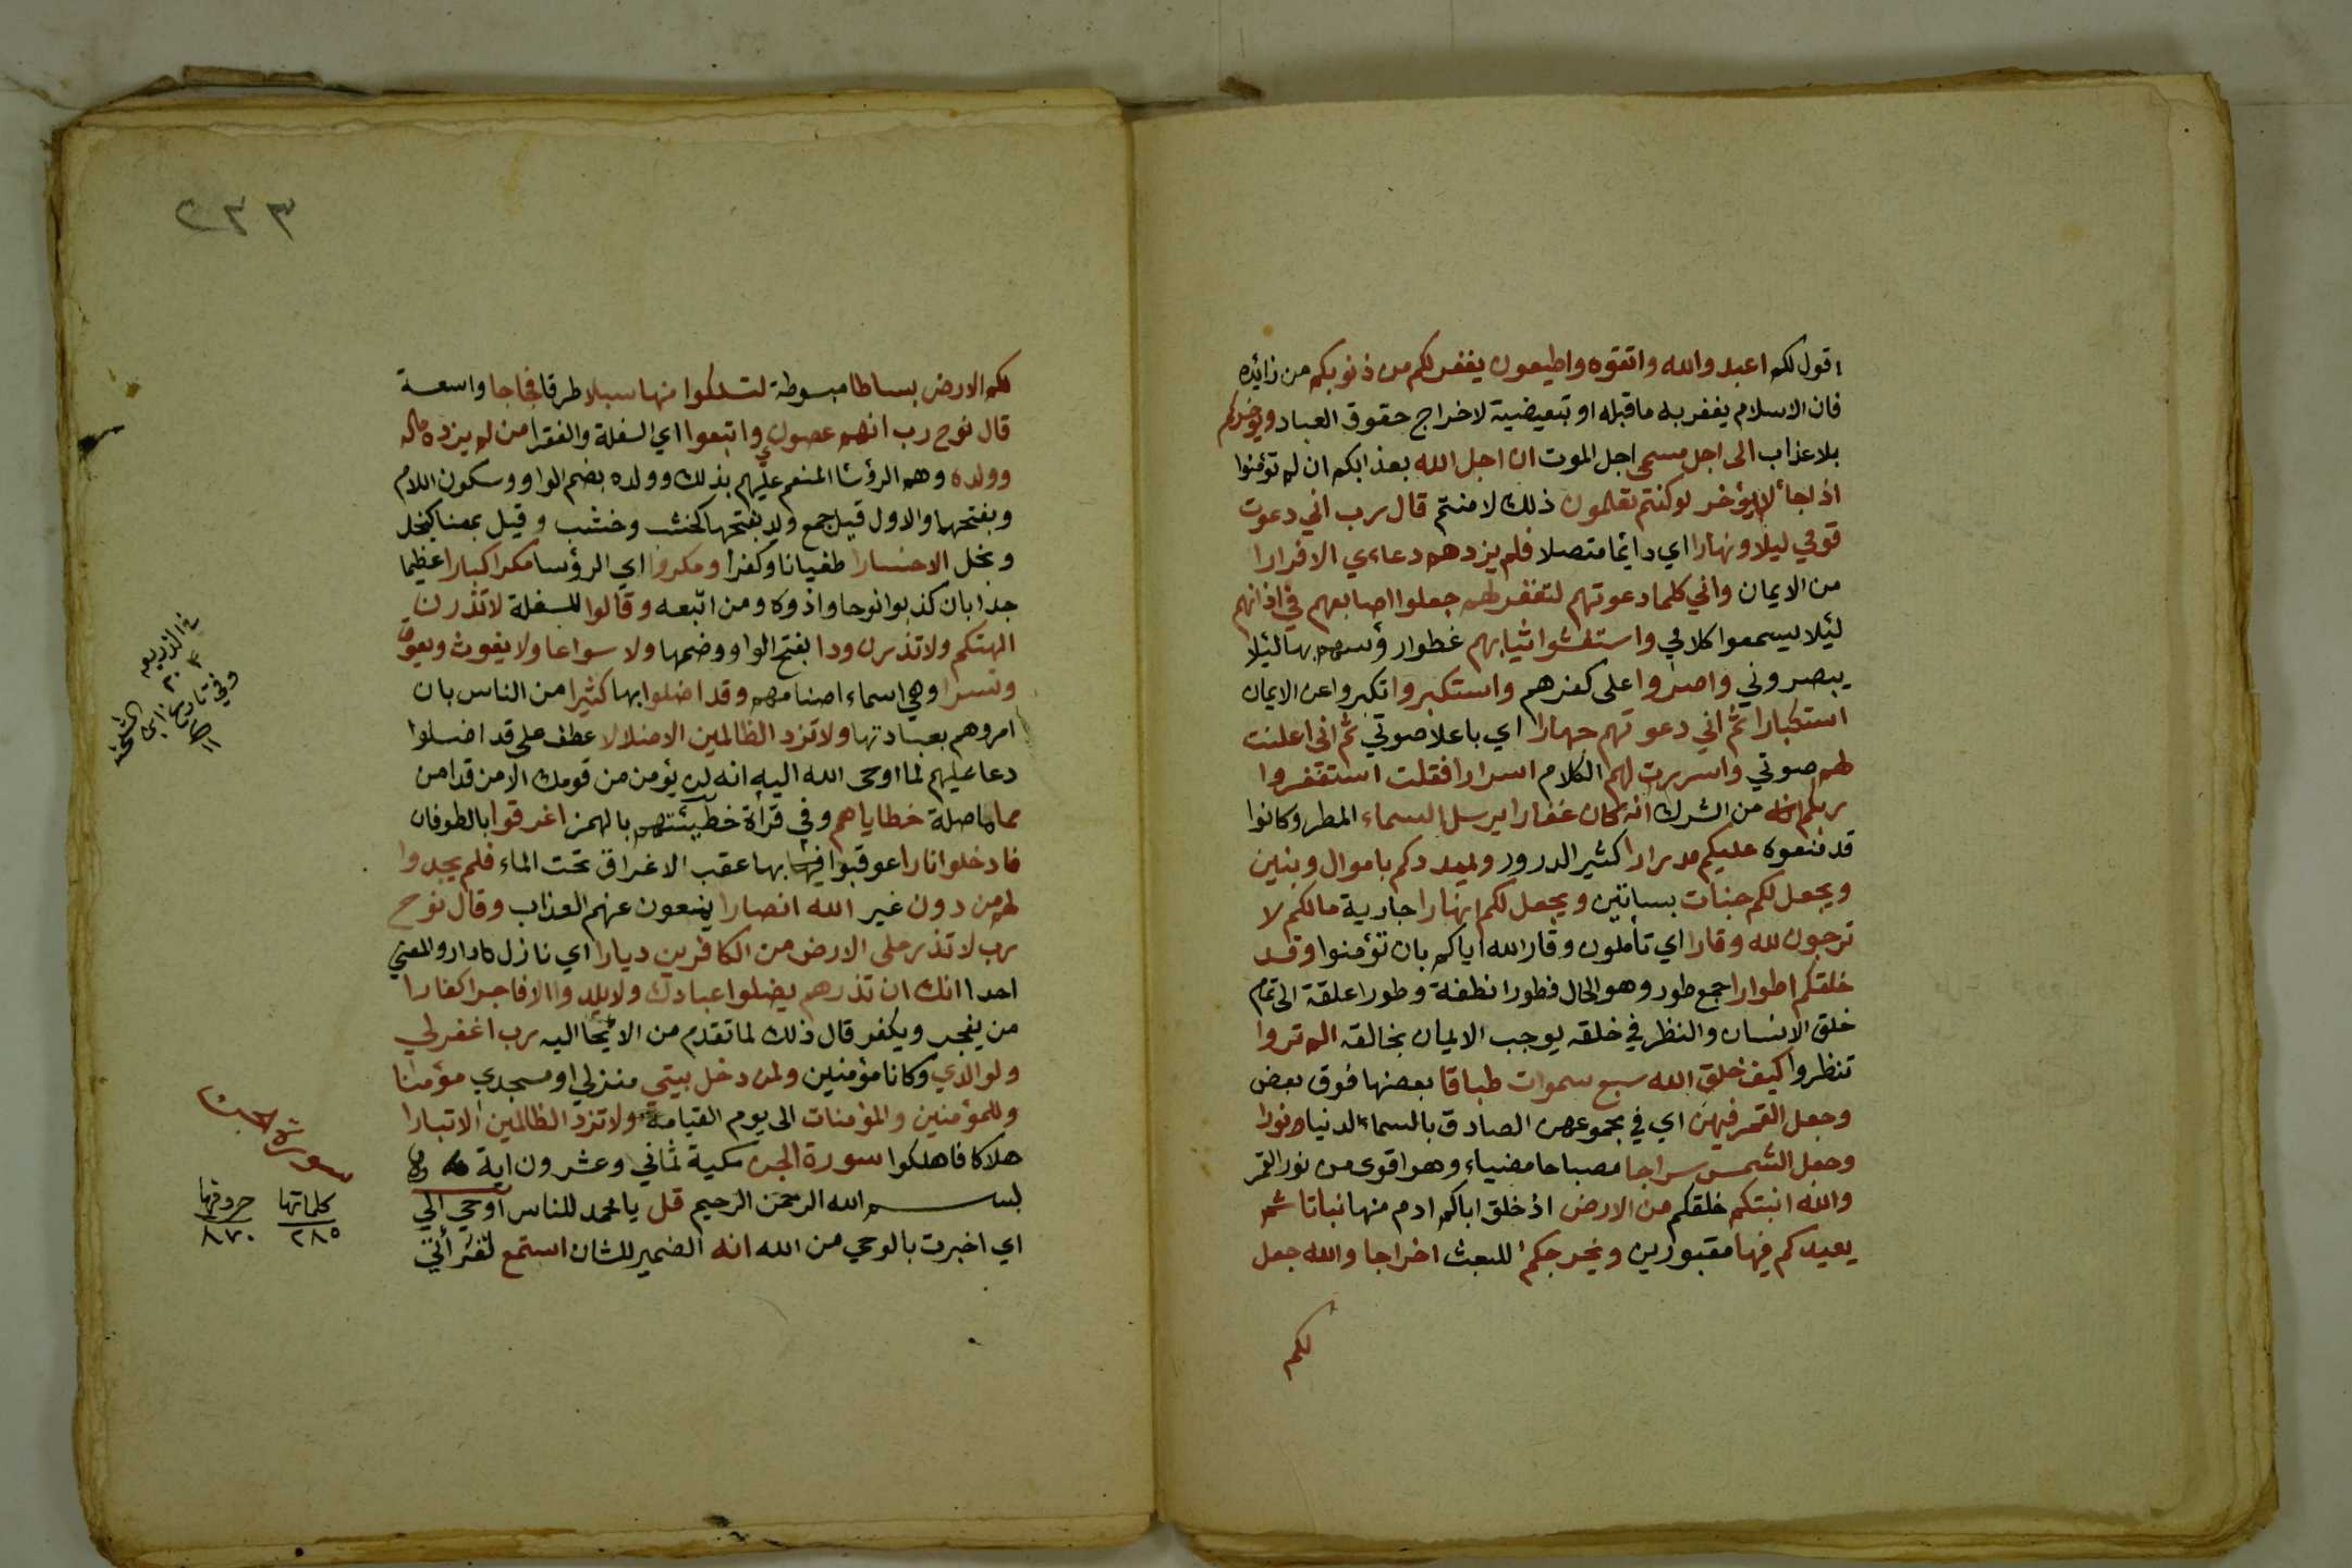 اقول لكم اعبدوالله واتقوه واطيعون يغفر لكم من ذنوبكم من زائده
فان الاسلام يغفر به ما قبله او تبعيضية لاخراج حقوق العباد ويؤخركم
بلا عذاب الى اجل مسمى اجل الموت ان اجل الله بعذابكم ان لم تؤمنوا
اذا جاء لا يؤخر لو كنتم تعلمون ذلك لامنتم قال رب اني دعوت
قومي ليلا ونهارا اي دائما متصلا فلم يزدهم دعاءي الا فرارا
من الايمان واني كلما دعوتهم لتغفر لهم جعلوا اصابعهم في اذانهم
لئلا يسمعوا كلامي واستغشوا ثيابهم غطوا رؤسهم بها لئلا
يبصروني واصروا على كفرهم واستكبروا تكبروا عن الايمان
استكبارا ثم اني دعوتهم جهارا اي باعلا صوتي ثم اني اعلنت
لهم صوتي واسررت لهم الكلام اسرارا فقلت استغفروا
ربكم من الشرك انه كان غفارا يرسل السماء المطر وكانوا
قد منعوه عليكم مدرارا كثير الدرور ويمددكم باموال وبنين
ويجعل لكم جنات بساتين ويجعل لكم انهارا جارية مالكم لا
ترجون لله وقارا اي تأملون وقار الله اياكم بان تؤمنوا وقد
خلقكم اطوارا جمع طور وهو الحال فطورا نطفة وطورا علقة الى تمام
خلق الانسان والنظر في خلقه يوجب الايمان بخالقه الم تروا
تنظروا كيف خلق الله سبع سموات طباقا بعضها فوق بعض
وجعل القمر فيهن اي في مجموعهن الصادق بالسماء الدنيا نورا
وجعل الشمس سراجا مصباحا مضياء وهو اقوى من نور القمر
والله انبتكم خلقكم من الارض اذ خلق اباكم ادم منها نباتا ثم
يعيدكم فيها مقبورين ويخرجكم للبعث اخراجا والله جعل
لكم
٢٣٣
لكم الارض بساطا مبسوطة لتسلكوا منها سبلا طرقا فجاجا واسعة
قال نوح رب انهم عصوني واتبعوا اي السفلة والفقرا من لم يزده ماله
وولده وهم الرؤسا المنعم عليهم بذلك وولده بضم الواو وسكون اللام
وبفتحهما والاول قيل جمع ولد بفتحها كخشب وخشب وقيل بمعناه كبخل
وبخل الا خسارا طغيانا وكفرا ومكروا اي الرؤسا مكرا كبارا عظيما
جدا بان كذبوا نوحا واذوه ومن اتبعه وقالوا للسفلة لا تذرن
الهتكم ولا تذرن ودا بفتح الواو وضمها ولا سواعا ولا يغوث ويعوق
ونسرا وهي اسماء اصنامهم وقد اضلوا بها كثيرا من الناس بان
امروهم بعبادتها ولا تزد الظالمين الا ضلالا عطف على قد اضلوا
دعا عليهم لما اوحى الله اليه انه لن يؤمن من قومك الا من قد امن
مما ما صلة خطاياهم وفي قرأة خطيئتهم بالهمز اغرقوا بالطوفان
فادخلوا نارا عوقبوا بها عقب الاغراق تحت الماء فلم يجدوا
لهم من دون غير الله انصارا يمنعون عنهم العذاب وقال نوح
رب لا تذر على الارض من الكافرين ديارا اي نازل دار والمعني
احدا انك ان تذرهم يضلوا عبادك ولا يلدوا الا فاجرا كفارا
من يفجر ويكفر قال ذلك لما تقدم من الايحا اليه رب اغفر لي
ولوالدي وكانا مؤمنين ولمن دخل بيتي منزلي او مسجدي مؤمنا
وللمؤمنين والمؤمنات الى يوم القيامة ولا تزد الظالمين الا تبارا
هلاكا فاهلكوا سورة الجن مكية ثماني وعشرون اية
بسم الله الرحمن الرحيم قل يا محمد للناس اوحي الي
اي اخبرت بالوحي من الله انه الضمير للشان استمع لقرأتي
سورة الجن
كلماتها حروفها
٢٨٥ ٨٧٠